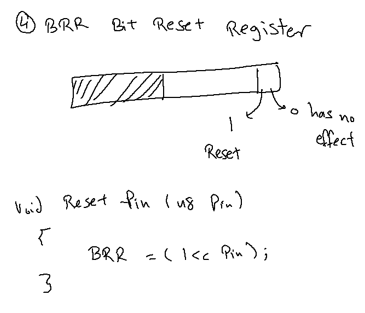 ④ BRR Bit Reset Register
1 0 has no
Reset effect
Void Reset Pin (u8 Pin)
{
BRR = (1<< Pin);
}